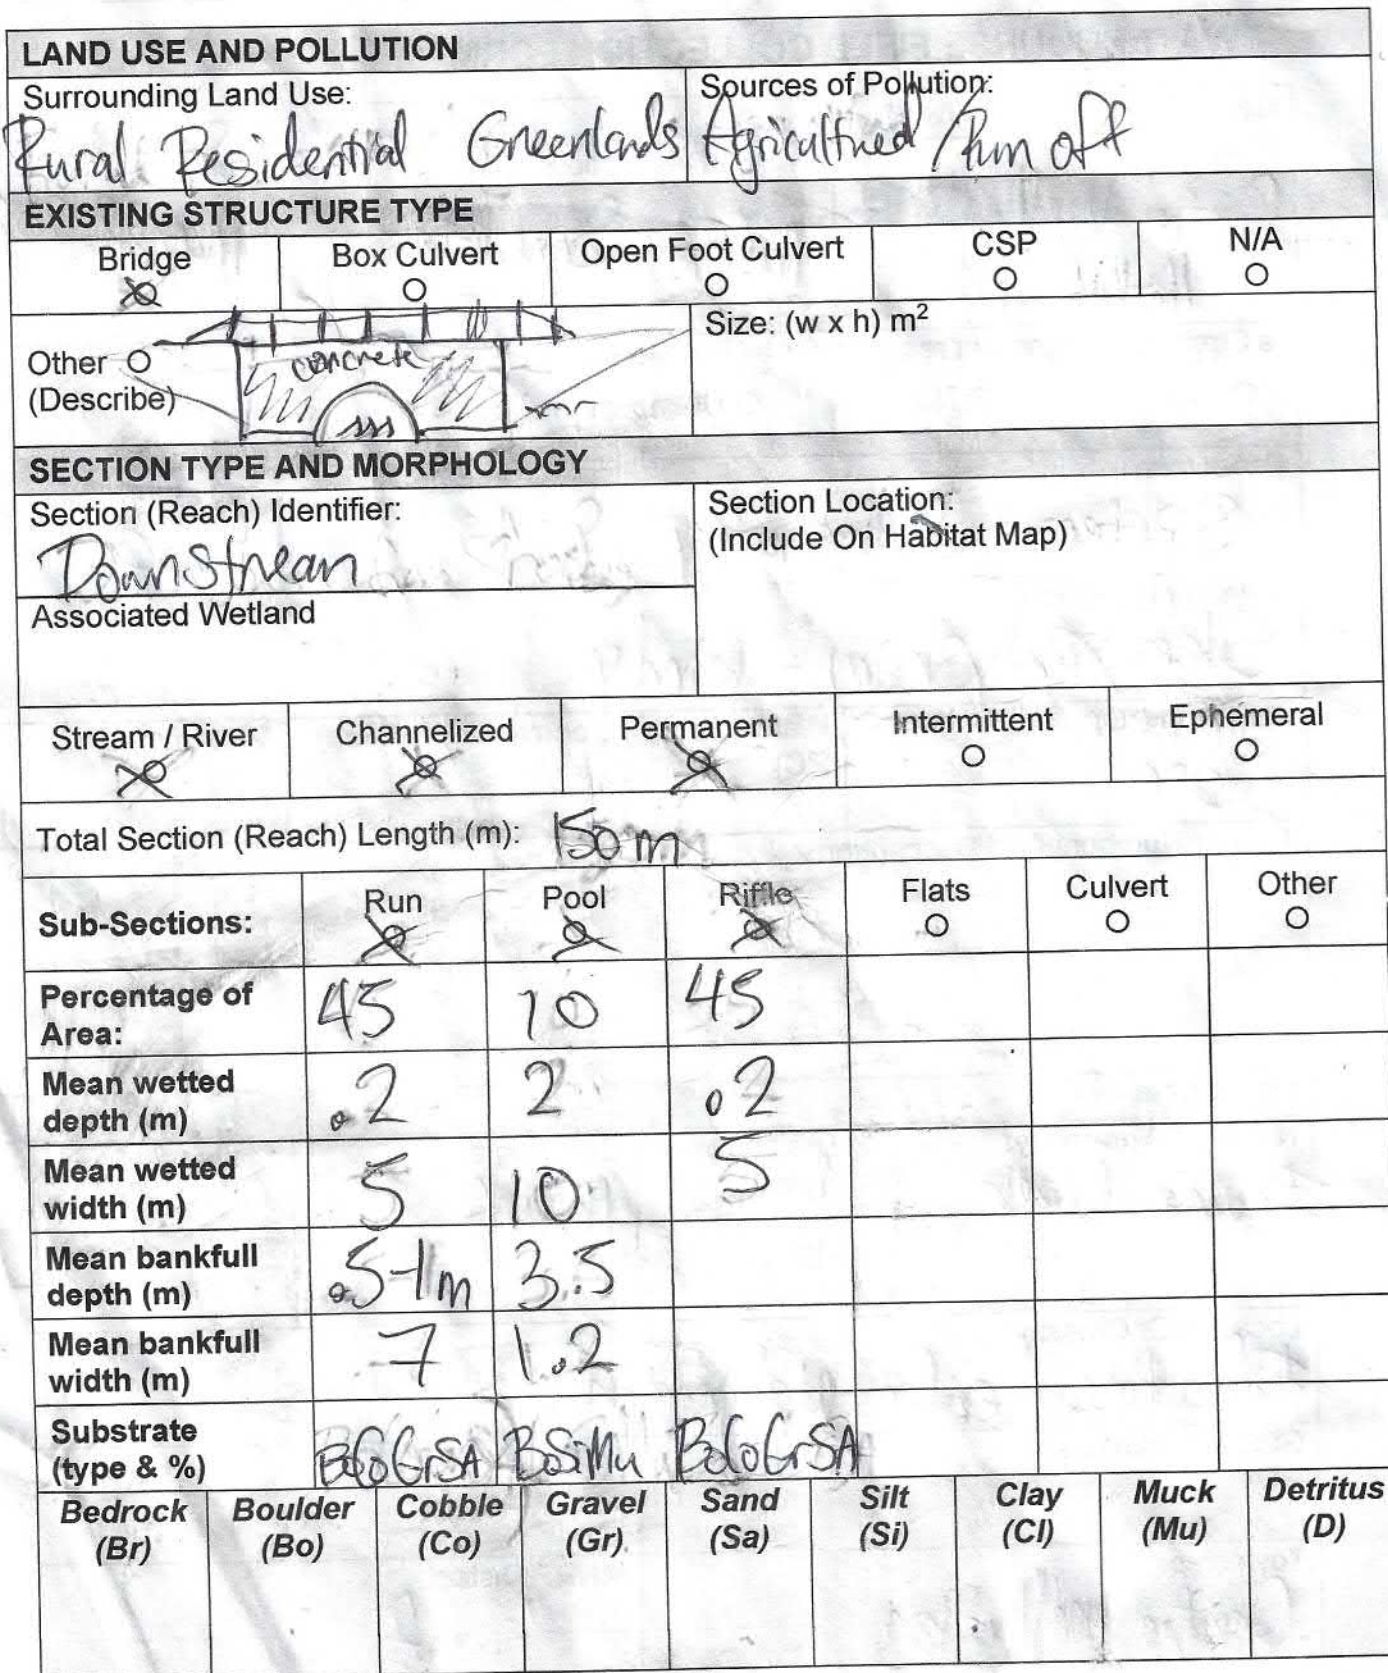 LAND USE AND POLLUTION
Surrounding Land Use:
Rural Residential Greenlands
Sources of Pollution:
Agricultured / Run off
EXISTING STRUCTURE TYPE
Bridge
Box Culvert
Open Foot Culvert
CSP
N/A
Other
(Describe)
concrete
Size: (w x h) m²
SECTION TYPE AND MORPHOLOGY
Section (Reach) Identifier:
Downstream
Section Location:
(Include On Habitat Map)
Associated Wetland
Stream / River
Channelized
Permanent
Intermittent
Ephemeral
Total Section (Reach) Length (m): 150 m
Sub-Sections: Run Pool Riffle Flats Culvert Other
Percentage of
Area: 45 10 45
Mean wetted
depth (m) .2 2 .2
Mean wetted
width (m) 5 10 5
Mean bankfull
depth (m) .5-1m 3.5
Mean bankfull
width (m) 7 1.2
Substrate
(type & %) BoCoGrSA BoSiMu BoCoGrSA
Bedrock Boulder Cobble Gravel Sand Silt Clay Muck Detritus
(Br) (Bo) (Co) (Gr) (Sa) (Si) (Cl) (Mu) (D)